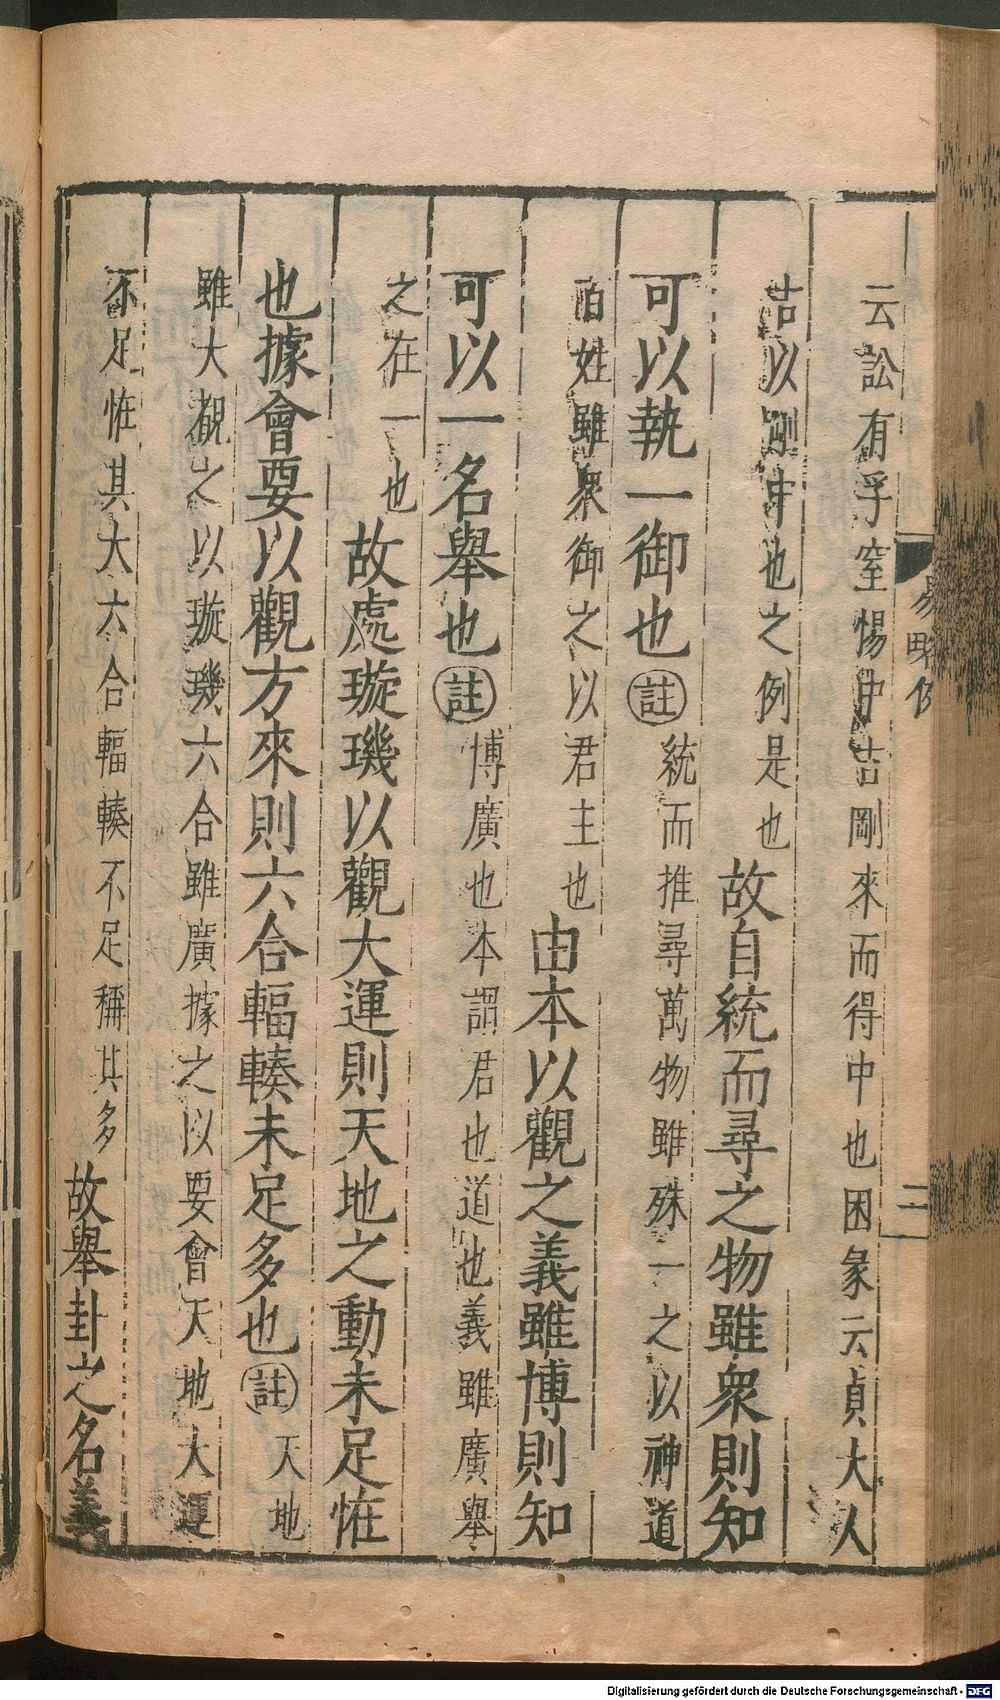 云訟有孚窒惕中吉剛來而得中也困彖云貞大人
吉以剛中也之例是也故自統而尋之物雖衆則知
可以執一御也註統而推尋萬物雖殊一之以神道
百姓雖衆御之以君主也由本以觀之義雖博則知
可以一名舉也註博廣也本謂君也道也義雖廣舉
之在一也故處璇璣以觀大運則天地之動未足恠
也據會要以觀方來則六合輻輳未足多也註天地
雖大覩之以璇璣六合雖廣據之以要會天地大運
不足恠其大六合輻輳不足稱其多故舉卦之名義
易略例
二
Digitalisierung gefördert durch die Deutsche Forschungsgemeinschaft - DFG